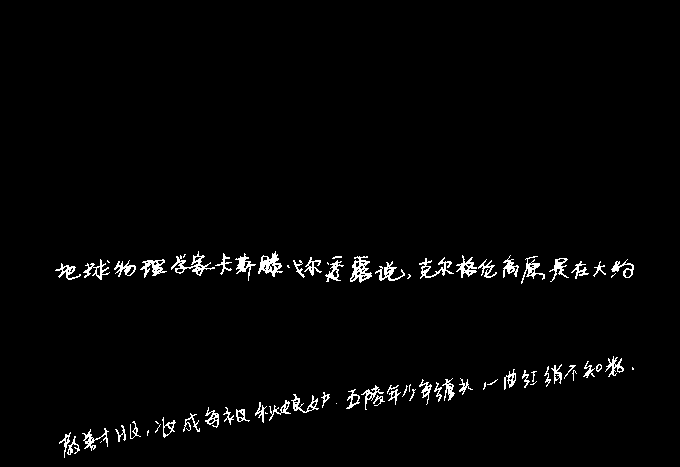 地球物理学家卡斯滕·戈尔透露说,克尔格伦高原是在大约
教善才服,妆成每被秋娘妒.五陵年少争缠头,一曲红绡不知数.